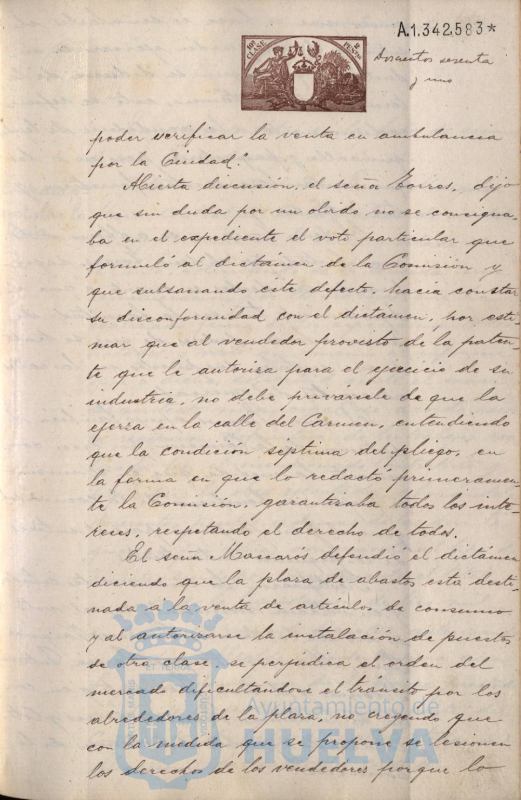 A.1.342.583*
10ª CLASE
2 PESETAS
Doscientos sesenta
y uno
poder verificar la venta en ambulancia
por la Ciudad."
Abierta discusión, el señor Torres, dijo
que sin duda por un olvido no se consigna-
ba en el expediente el voto particular que
formuló al dictámen de la Comisión y
que subsanando este defecto, hacía constar
su disconformidad con el dictámen, por esti-
mar que al vendedor provisto de la paten-
te que le autoriza para el ejercicio de su
industria, no debe privársele de que la
ejerza en la calle del Carmen, entendiendo
que la condición séptima del pliego, en
la forma en que lo redactó primeramen-
te la Comisión, garantizaba todos los inte-
reses, respetando el derecho de todos.
El señor Mascarós defendió el dictámen
diciendo que la plaza de abastos está desti-
nada a la venta de artículos de consumo
y al autorizarse la instalación de puestos
de otra clase, se perjudica el orden del
mercado dificultandose el tránsito por los
alrededores de la plaza, no creyendo que
con la medida que se propone se lesionen
los derechos de los vendedores porque lo
Ayuntamiento de
HUELVA